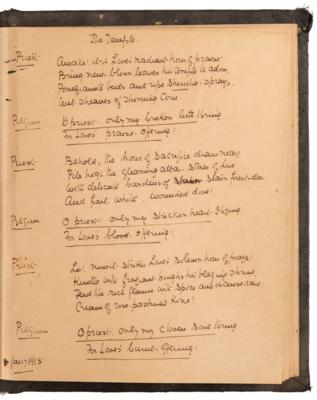 The Temple.
Priest: Awake! it is Love's radiant hour of praise
Bring new blown leaves his temple to adorn,
Pomegranate buds and ripe Sirisha sprays,
Wet sheaves of shining Corn.
Pilgrim O priest! only my broken lute I bring
For Love's praise-offering!
Priest: Behold, the hour of Sacrifice draws near,
Pile high the gleaming altar Stones of Love
With delicate burdens of slain forest-deer
And frail, white, wounded dove!
Pilgrim O priest! only my Stricken heart I bring
For Love's blood-offering!
Priest: Lo! now it Strikes Love's Solemn hour of prayer!
Kindle with fragrant boughs his blazing Shrine,
Feed the rich flame with Spice and incense rare,
Cream of rose-pastured Kine!
Pilgrim O priest! only my Cloven Soul I bring
For Love's burnt-offering!
1915